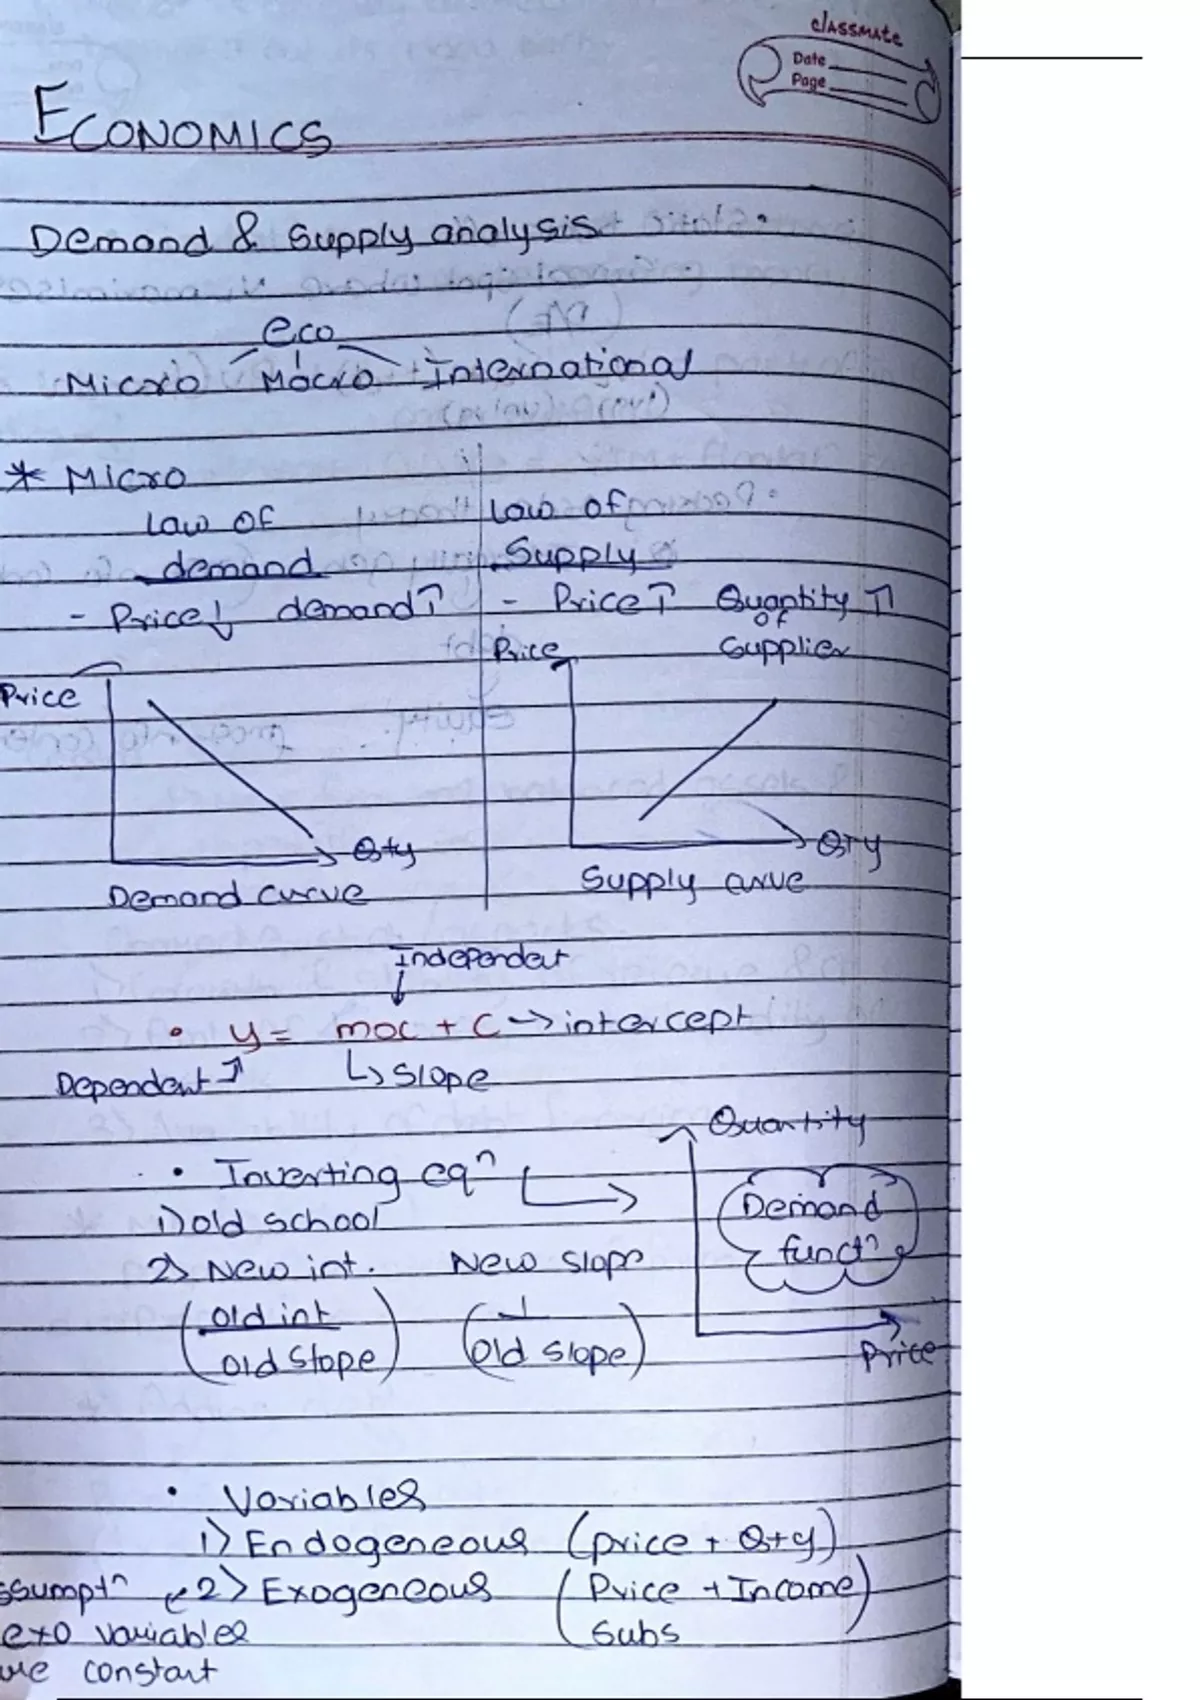 classmate
Date
Page
ECONOMICS
Demand & Supply analysis
eco
Micro Macro International
* Micro
Law of demand
- Price ↓ demand ↑
Price
Qty
Demand curve
Law of Supply
- Price ↑ Quantity ↑ of Supplier
Price
QTY
Supply curve
Independent
• y = mx + c → intercept
Dependent ↗ ↳ Slope
• Inverting eqⁿ
Quantity
Demand functⁿ
Price
1) old school
2) New int. New slope
(old int / old slope) (1 / old slope)
• Variables
1) Endogeneous (price + Qty)
2) Exogeneous (Price + Income Subs)
ssumptⁿ
exo variables
are constant